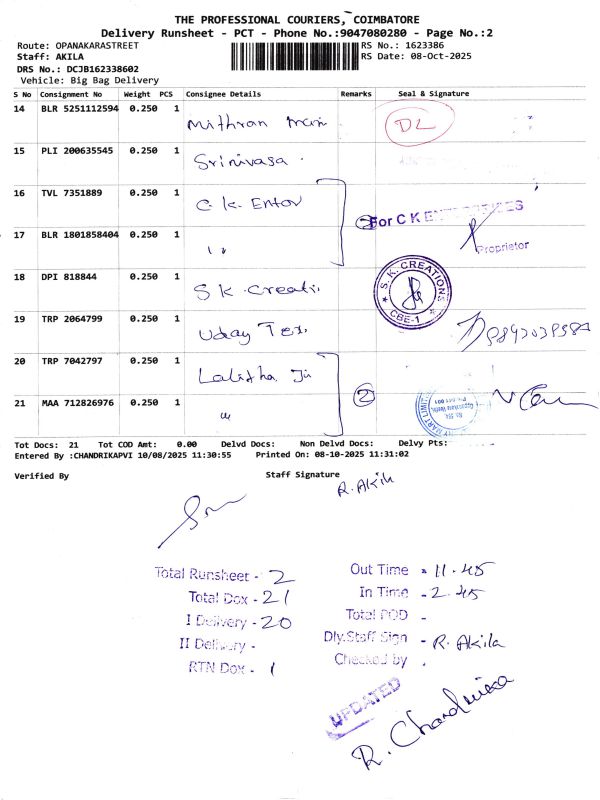 THE PROFESSIONAL COURIERS, COIMBATORE
Delivery Runsheet - PCT - Phone No.:9047080280 - Page No.:2
Route: OPANAKARASTREET RS No.: 1623386
Staff: AKILA RS Date: 08-Oct-2025
DRS No.: DCJB162338602
Vehicle: Big Bag Delivery
S No Consignment No Weight PCS Consignee Details Remarks Seal & Signature
14 BLR 5251112594 0.250 1 Mithran DL
15 PLI 200635545 0.250 1 Srinivasa
16 TVL 7351889 0.250 1 C K Enter
For C K ENTERPRISES
17 BLR 1801858404 0.250 1 "
Proprietor
18 DPI 818844 0.250 1 S K Creati
S.K. CREATIONS CBE-1
19 TRP 2064799 0.250 1 Uday Tex
20 TRP 7042797 0.250 1 Lalitha
2
21 MAA 712826976 0.250 1 "
Tot Docs: 21 Tot COD Amt: 0.00 Delvd Docs: Non Delvd Docs: Delvy Pts:
Entered By :CHANDRIKAPVI 10/08/2025 11:30:55 Printed On: 08-10-2025 11:31:02
Verified By Staff Signature
R. Akila
Total Runsheet - 2 Out Time - 11.45
Total Dox - 21 In Time - 2.45
I Delivery - 20 Total POD -
II Delivery - Dly.Staff Sign - R. Akila
RTN Dox - 1 Checked by -
UPDATED
R. Chandrika